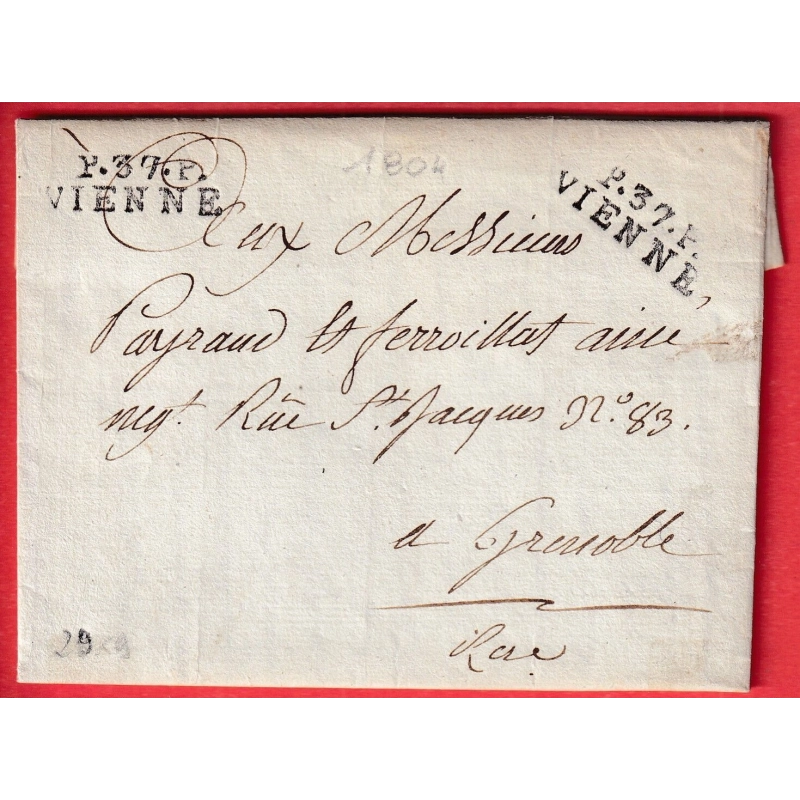 P.37.P.
VIENNE
1804
P.37.P.
VIENNE
Aux Messieurs
Payraud et ferroillat ainé
negt. Rüe St. Jacques No. 83.
a Grenoble
29